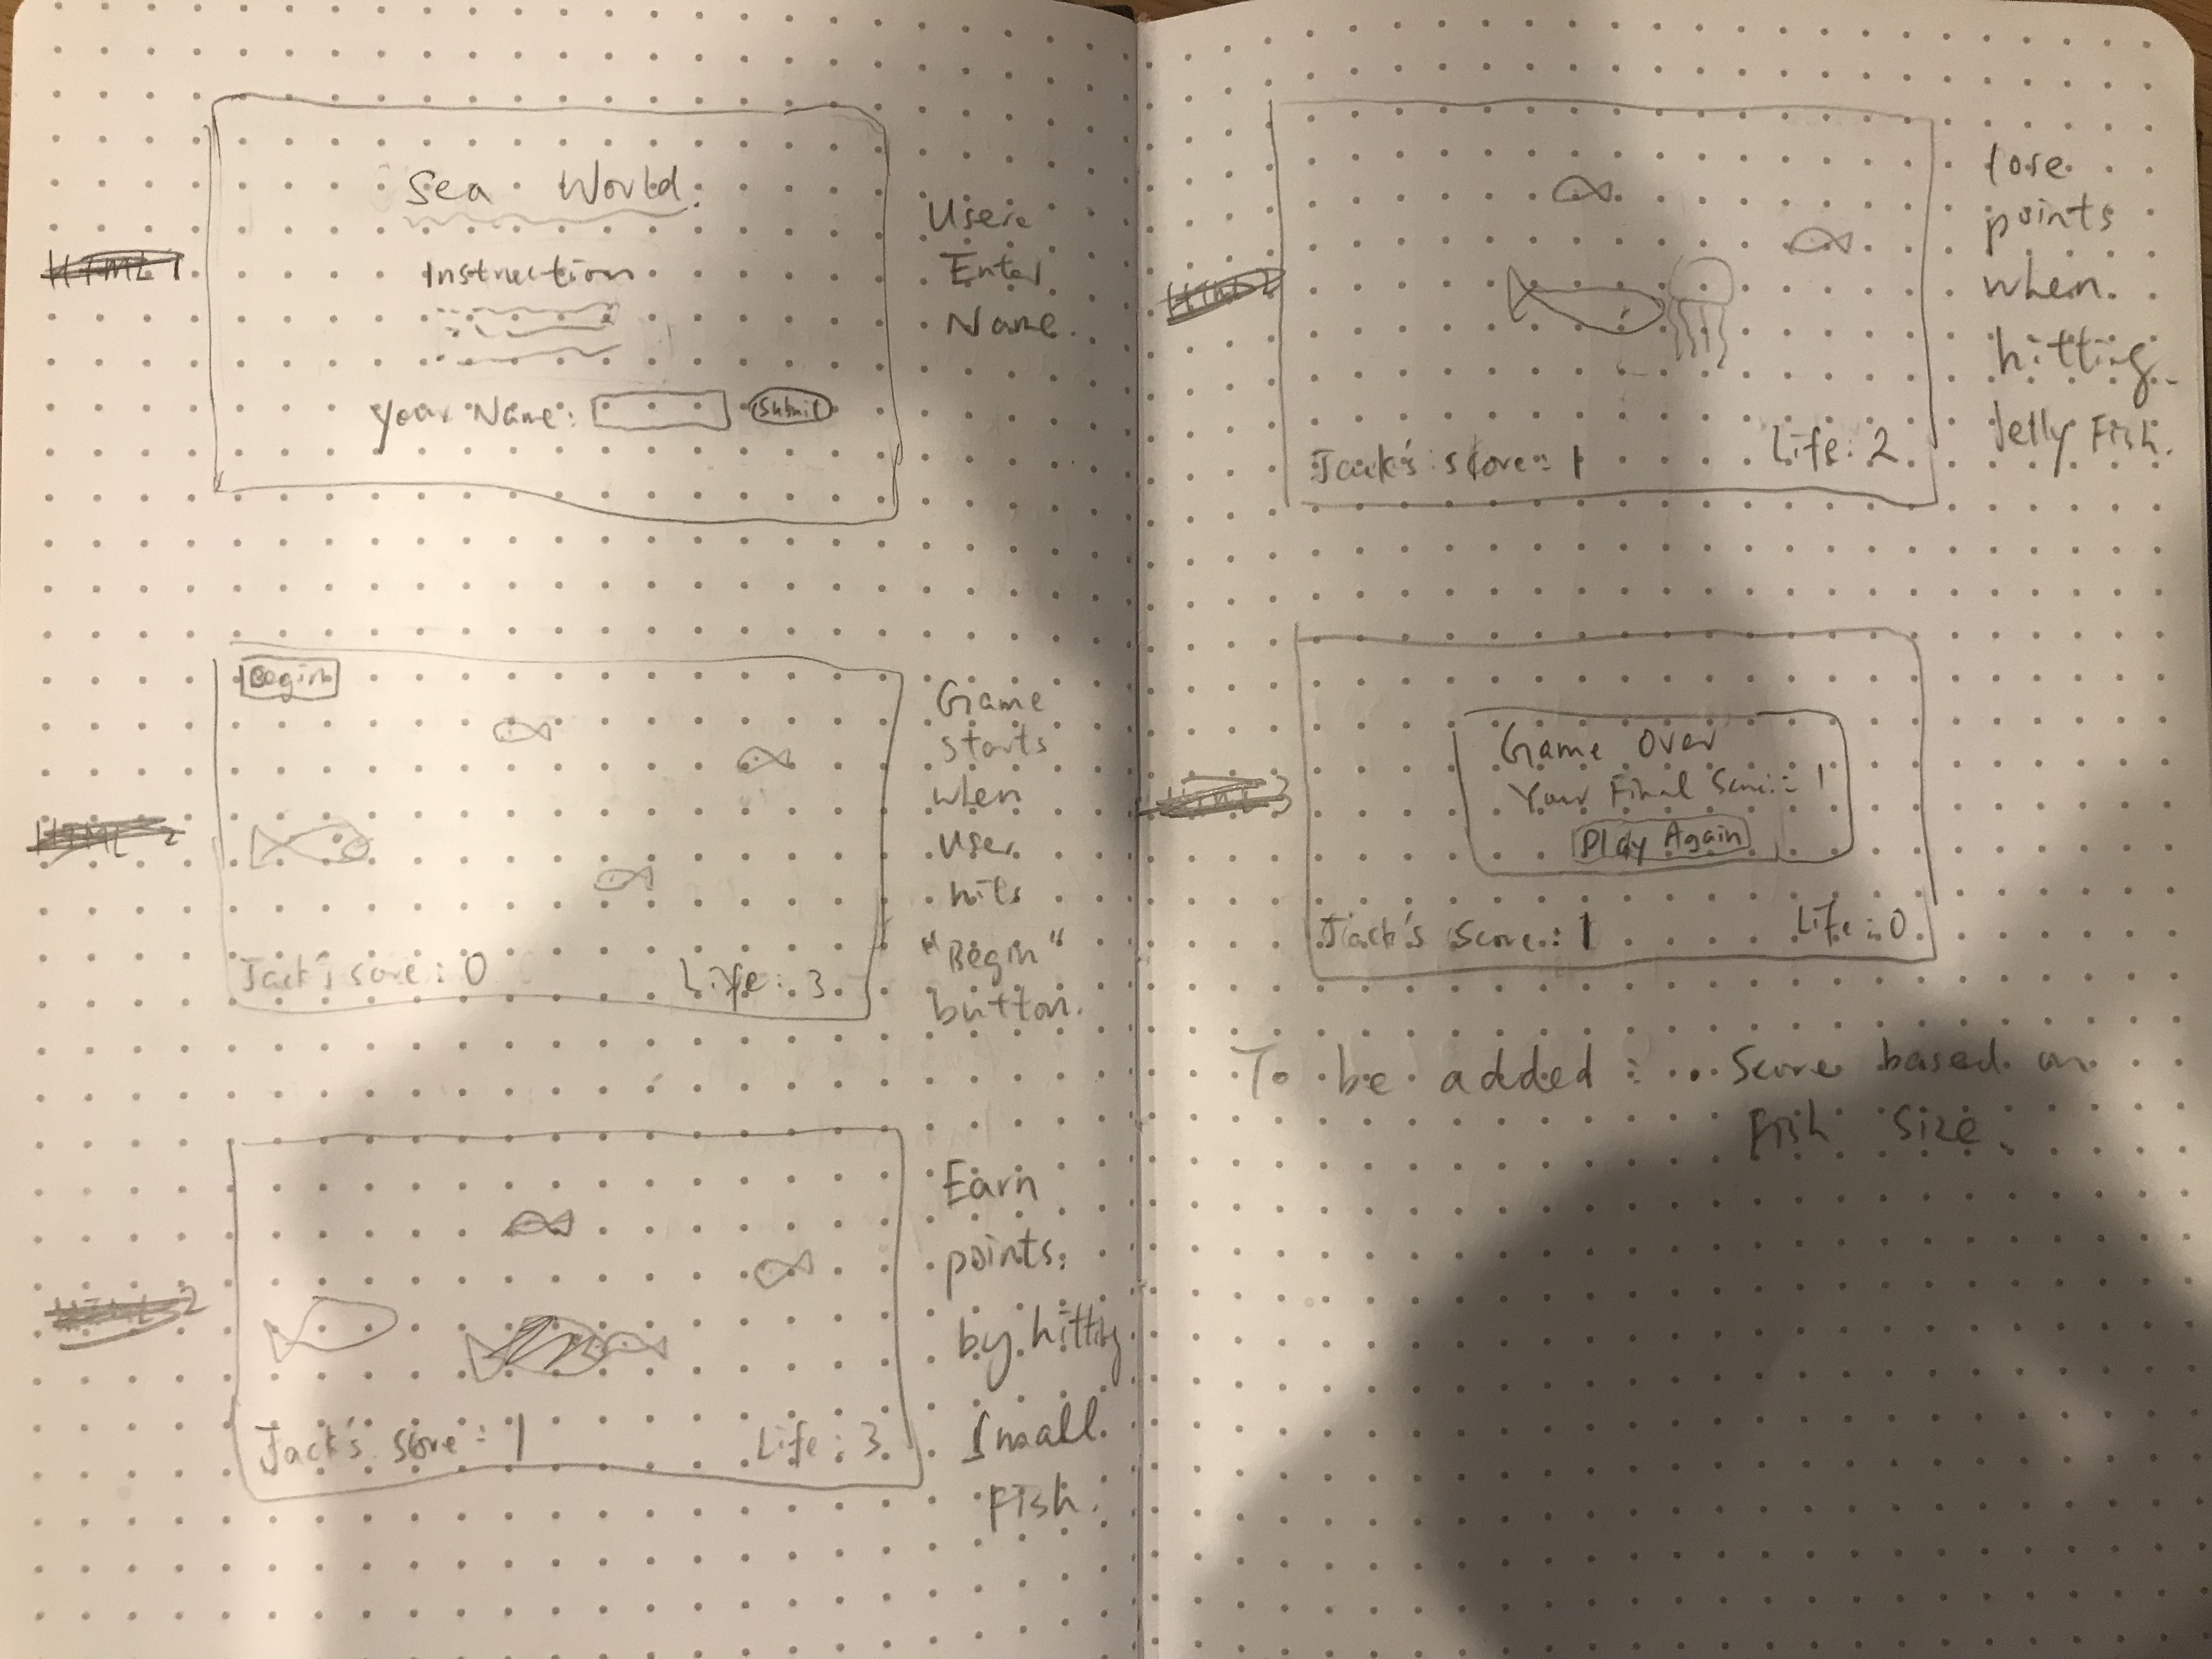 Sea World.
Instruction
Your Name: Submit
User
Enter
Name.
Begin
Jack's Score: 0
Life: 3
Game
starts
when
user
hits
"Begin"
button.
Jack's Score: 1
Life: 3
Earn
points
by hitting
small
fish.
Jack's score: 1
Life: 2
lose
points
when
hitting
Jelly Fish.
Game Over
Your Final Score: 1
Play Again
Jack's Score: 1
Life: 0
To be added: . Score based on
Fish Size.